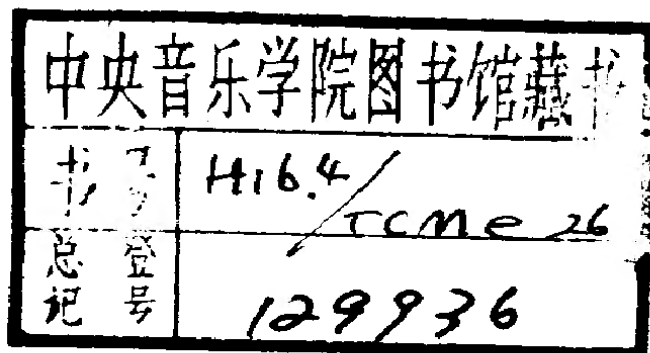 中央音乐学院图书馆藏书
书号 H16.4/TCMe 26
总登记号 129936